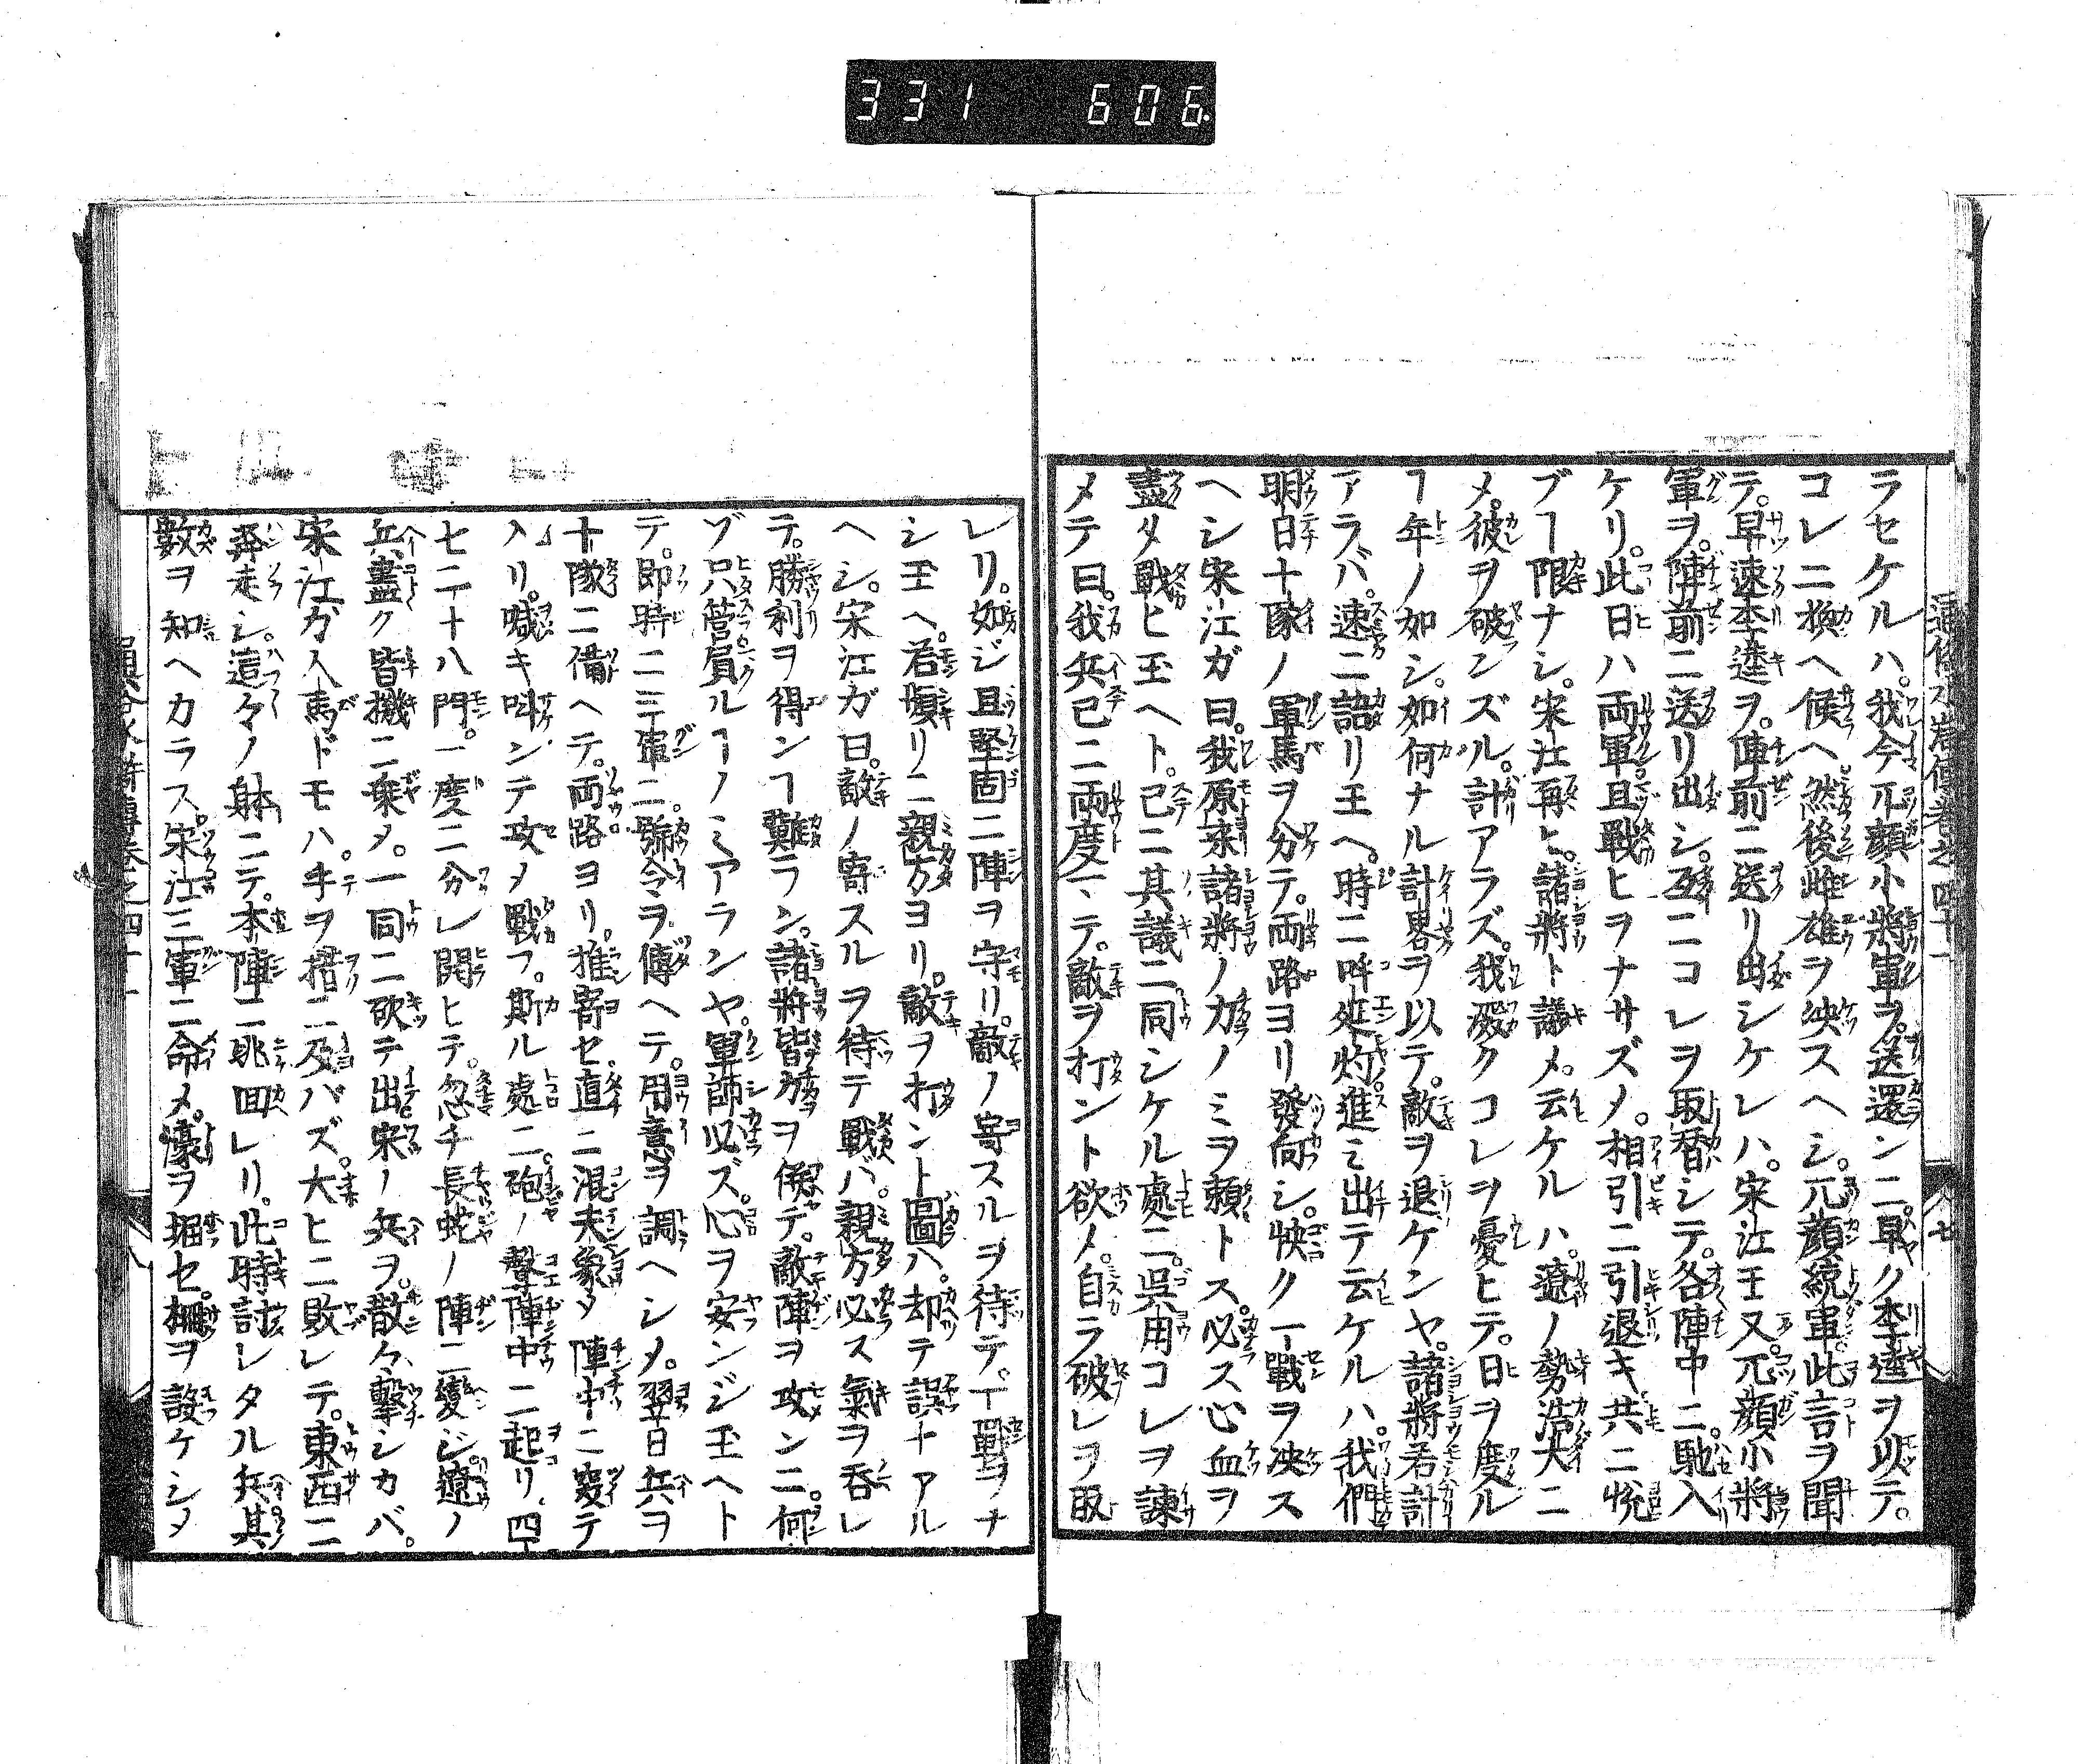 331 606.
ラセケルハ。我今兀顔小將軍ヲ。送還ンニ。早ク李逵ヲ以テ。
コレニ換ヘ候ヘ。然後雌雄ヲ决スヘシ。兀顔統軍。此言ヲ聞
テ。早速李逵ヲ。陣前ニ送リ出シケレハ。宋江王又。兀顔小將
軍ヲ。陣前ニ送リ出シ。互ニコレヲ取替シテ。各陣中ニ。馳入
ケリ。此日ハ両軍且戰ヒヲナサズメ。相引ニ引退キ共ニ悦
ブヿ限ナシ。宋江再ヒ。諸將ト議メ。云ケルハ。遼ノ勢浩大ニ
メ。彼ヲ破ンズル。計アラズ。我殿クコレヲ憂ヒテ。日ヲ度ル
ヿ年ノ如シ。如何ナル計畧ヲ以テ。敵ヲ退ケンヤ。諸將若計
アラバ。速ニ語リ玉ヘ。時ニ呼延灼進ミ出テ云ケルハ。我們
明日十隊ノ軍馬ヲ分テ。両路ヨリ發向シ。快ク一戰ヲ决ス
ヘシ宋江ガ曰。我原来諸將ノ力ノミヲ頼トス。必ス心血ヲ
盡タ戰ヒ玉ヘト。已ニ其議ニ。同シケル處ニ。呉用コレヲ諫
メテ曰。我兵已ニ両度一、テ。敵ヲ打ント欲メ。自ラ破レヲ取
レリ。如ジ且堅固ニ陣ヲ守リ。敵ノ寄スルヲ待テ。一戰ヲナ
シ玉ヘ。若慎リニ親方ヨリ。敵ヲ打ント圖ハ。却テ誤ナアル
ヘシ。宋江ガ曰。敵ノ寄スルヲ待テ戰バ。親方必ス氣ヲ呑レ
テ。勝利ヲ得ンヿ難ラン。諸將皆力ヲ併テ。敵陣ヲ攻ンニ。何
ゾ只管負ルヿノミアランヤ。軍師必ズ。心ヲ安ンジ玉ヘト
テ。即時ニ三軍ニ。號令ヲ傳ヘテ。用意ヲ調ヘシメ。翌日兵ヲ
十隊ニ備ヘテ。両路ヨリ。推寄セ。直ニ混天象ノ陣中ニ突テ
入リ。喊キ叫ンテ攻メ戰フ。斯ル處ニ。砲ノ聲陣中ニ起リ、四
七二十八門。一度ニ分レ開ヒテ。忽チ長蛇ノ陣ニ變ジ。遼ノ
兵盡ク皆機ニ乗メ。一同ニ砍テ出。宋ノ兵ヲ。散々擊シカバ。
宋江ガ人馬ドモハ。手ヲ措ニ及バズ。大ヒニ敗レテ。東西ニ
奔走シ。這々ノ躰ニテ。本陣ニ迯回レリ。此時討レタル兵其
數ヲ知ヘカラス。宋江三軍ニ命メ。濠ヲ堀セ。柵ヲ設ケシメ